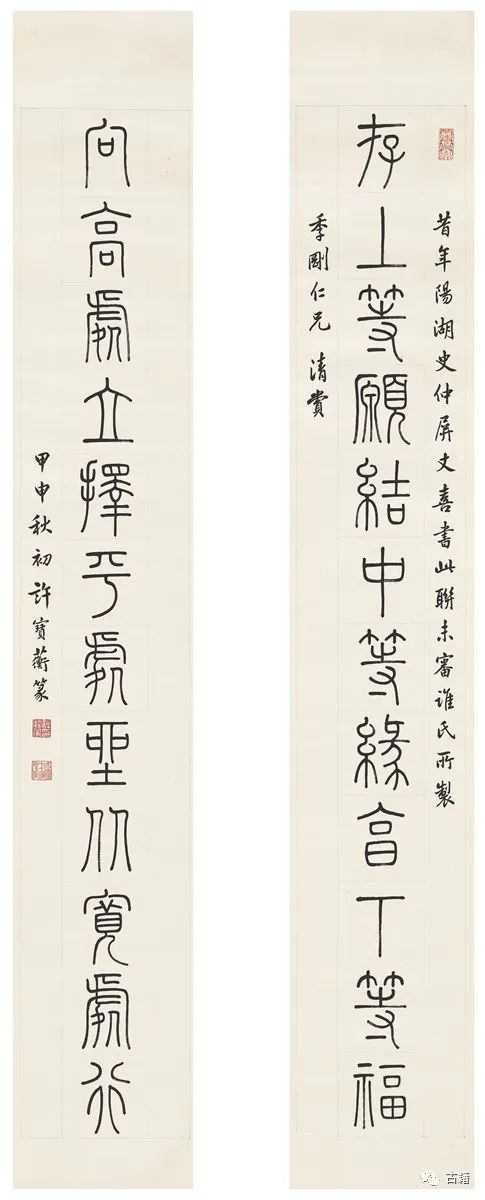 昔年陽湖史仲屏丈喜書此聯未審誰氏所製
存上等願結中等緣享下等福
季剛仁兄 清賞
向高處立擇平處坐从寬處行
甲申秋初許寶蘅篆
古籍